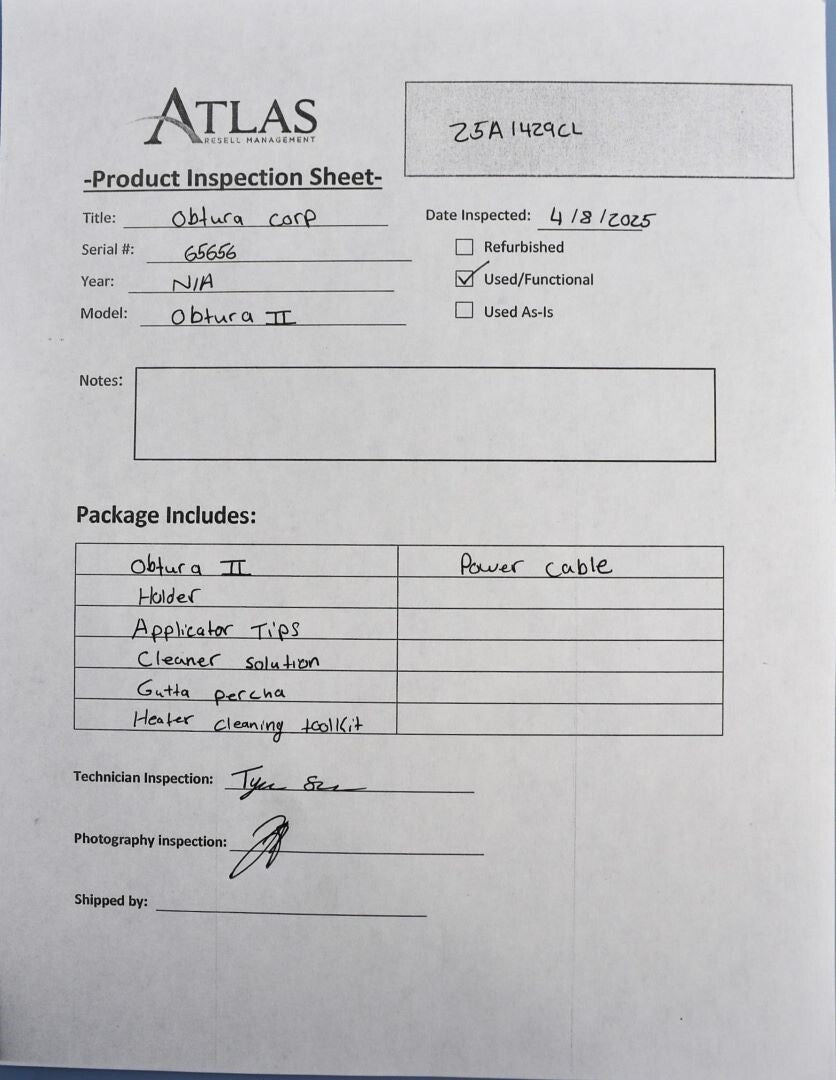 ATLAS
RESELL MANAGEMENT
25A1429CL
-Product Inspection Sheet-
Title: Obtura corp
Date Inspected: 4/8/2025
Serial #: 65656
Refurbished
Year: N/A
Used/Functional
Model: Obtura II
Used As-Is
Notes:
Package Includes:
Obtura II Power cable
Holder
Applicator Tips
Cleaner solution
Gutta percha
Heater cleaning toolkit
Technician Inspection:
Photography inspection:
Shipped by: